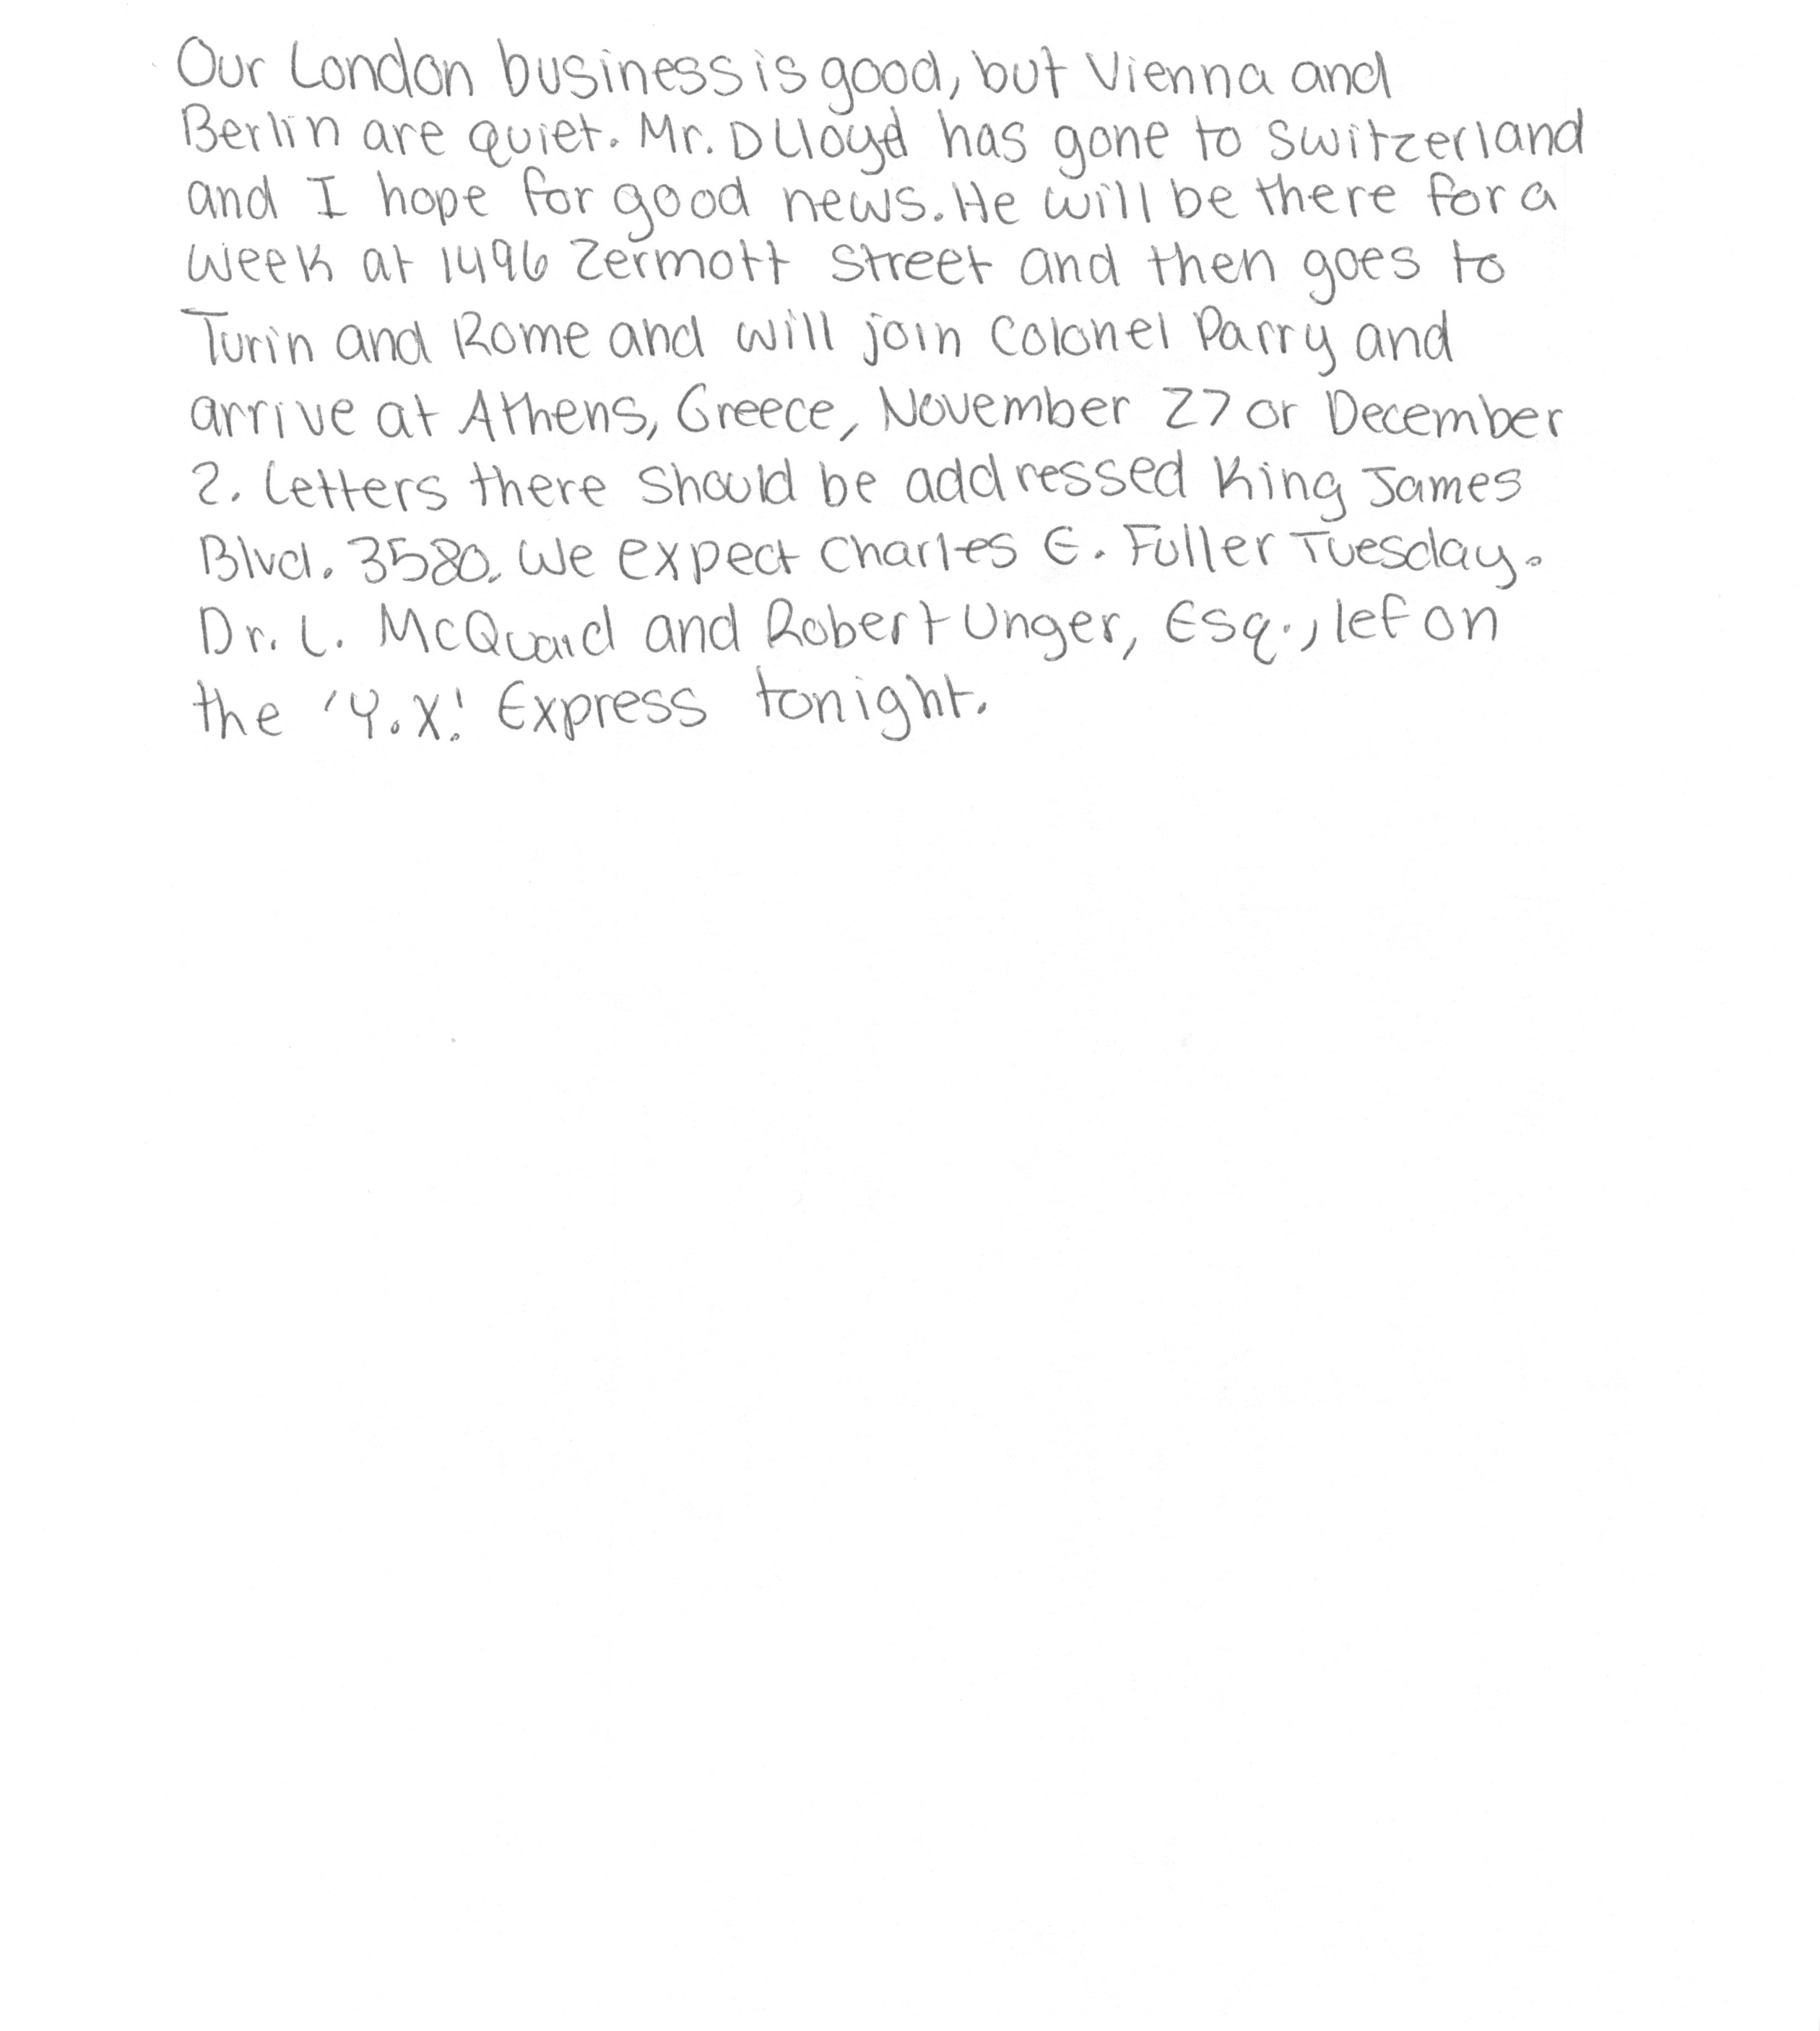 Our London business is good, but Vienna and
Berlin are quiet. Mr. D Lloyd has gone to Switzerland
and I hope for good news. He will be there for a
week at 1496 Zermott Street and then goes to
Turin and Rome and will join Colonel Parry and
arrive at Athens, Greece, November 27 or December
2. Letters there should be addressed King James
Blvd. 3580. We expect Charles E. Fuller Tuesday.
Dr. L. McQuaid and Robert Unger, Esq., lef on
the 'Y.X.' Express tonight.